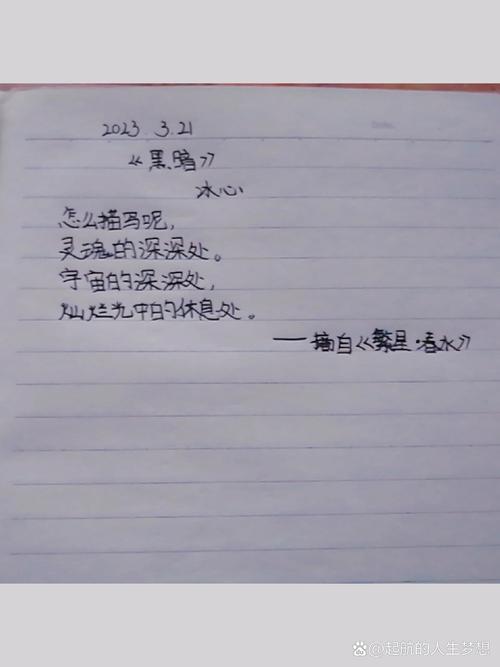 2023.3.21
《黑暗》
冰心
怎么描写呢,
灵魂的深深处。
宇宙的深深处,
灿烂光中的休息处。
——摘自《繁星·春水》
@起航的人生梦想